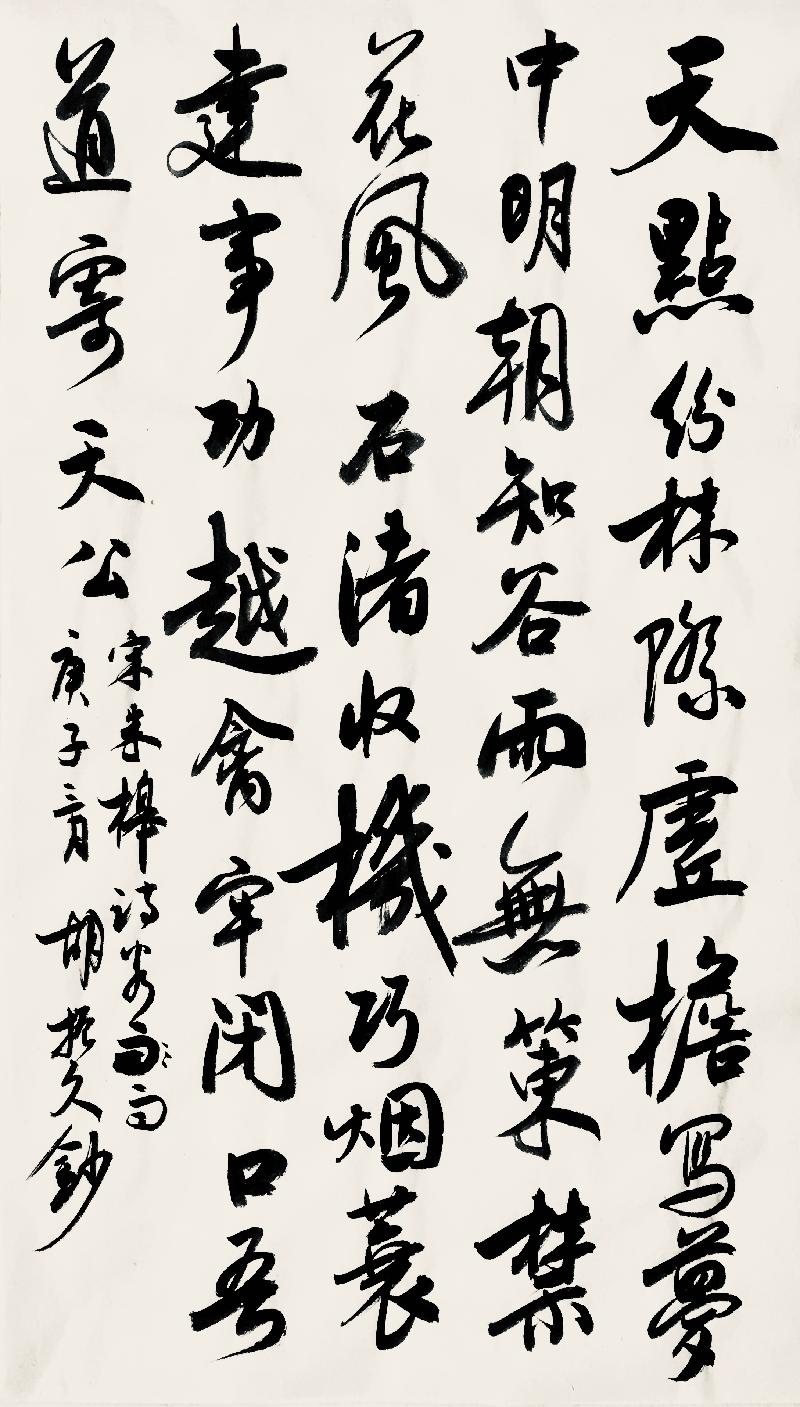 天點紛林際虛檐写夢
中明朝知谷雨無策禁
花風石渚收機巧烟蓑
建事功越禽牢閉口吾
道寄天公
宋朱槔詩
庚子三月 胡振久鈔